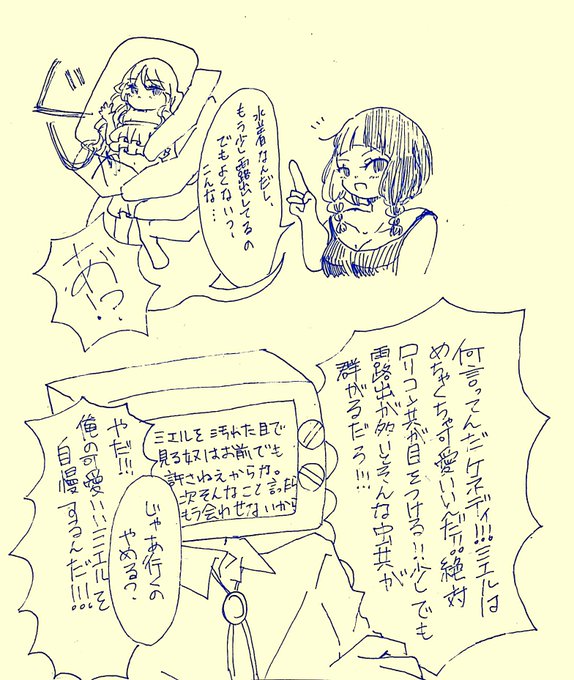 水着なんだし、
もう少し露出してるの
でもよくないっ?
こんな…
あ"!?
何言ってんだケネディ!!!ミエルは
めちゃくちゃ可愛いいんだ!!絶対
ロリコン共が目をつける!!少しでも
露出が多いとそんな虫共が
群がるだろ!!!
ミエルを汚れた目で
見る奴はお前でも
許さねえからな。
次そんなこと言ったら
もう会わせないから
じゃあ行くの
やめる?
やだ!!!
俺の可愛いいミエルを
自慢するんだ!!!!